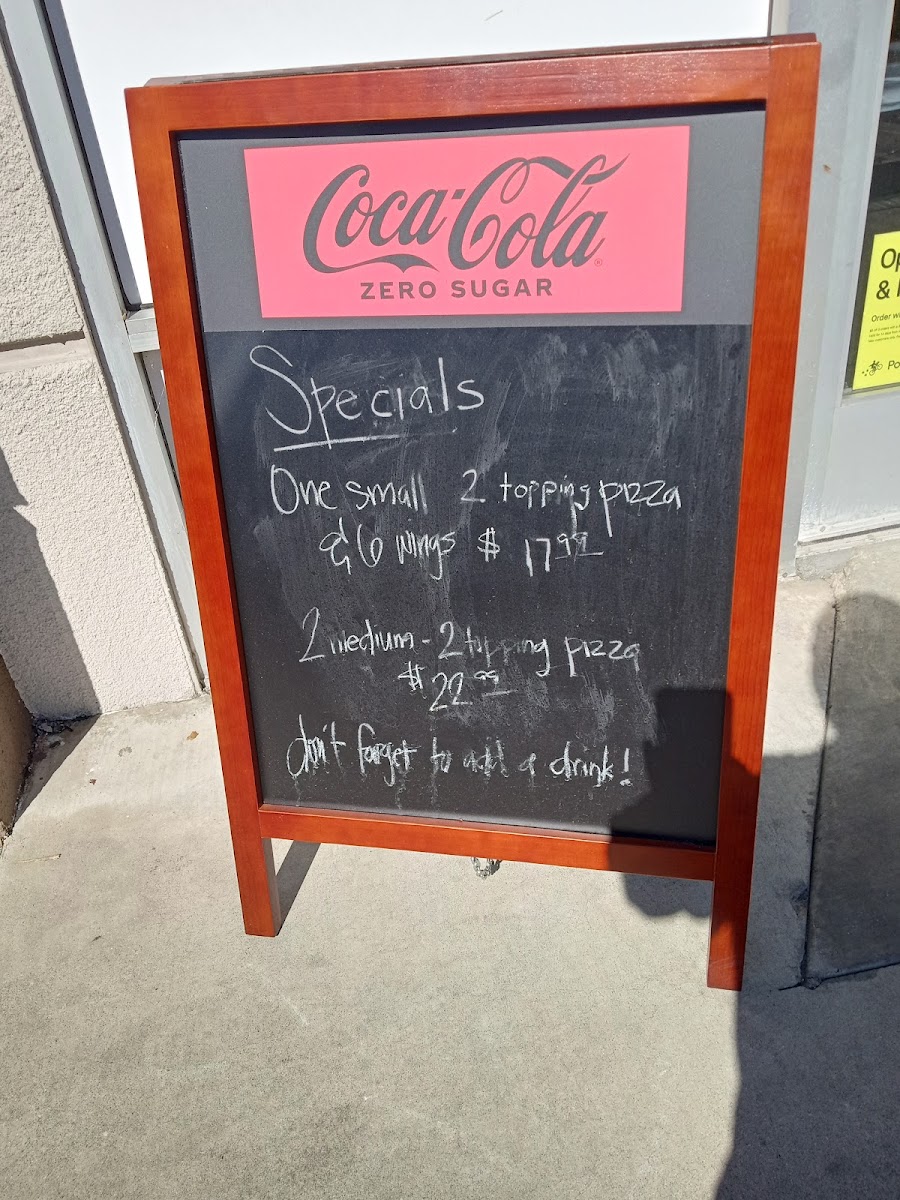 Coca-Cola
ZERO SUGAR
Specials
One small 2 topping pizza
& 6 wings $ 17.99
2 medium - 2 topping pizza
$ 22.99
don't forget to add a drink!
Op
&
Order w
Po